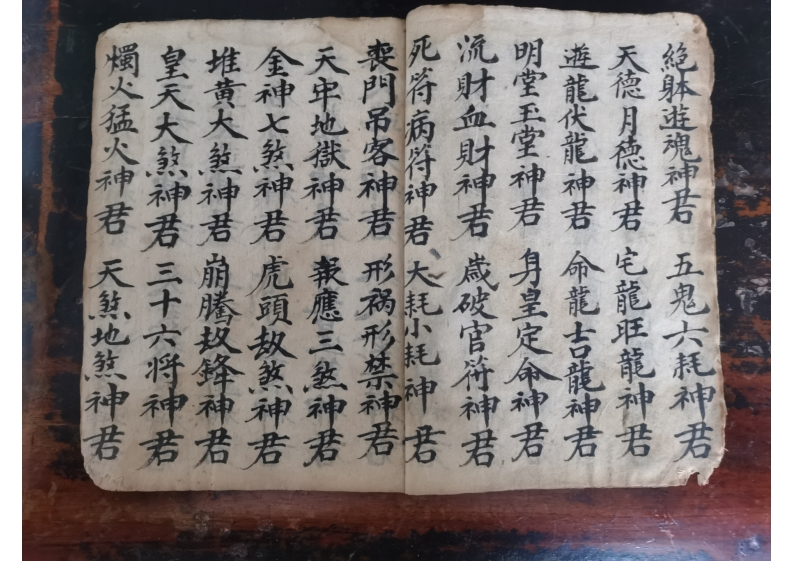 絕躰遊魂神君 五鬼六耗神君
天德月德神君 宅龍旺龍神君
遊龍伏龍神君 命龍吉龍神君
明堂玉堂神君 身皇定命神君
流財血財神君 歲破官符神君
死符病符神君 大耗小耗神君
喪門吊客神君 形禍形禁神君
天牢地獄神君 報應三煞神君
金神七煞神君 虎頭劫煞神君
堆黃大煞神君 崩騰劫鋒神君
皇天大煞神君 三十六將神君
燭火猛火神君 天煞地煞神君